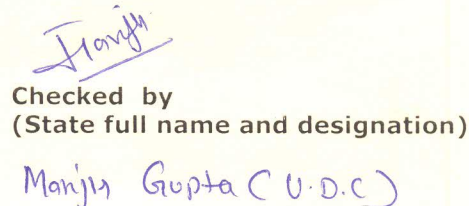 Manju
Checked by
(State full name and designation)
Manju Gupta (U.D.C)